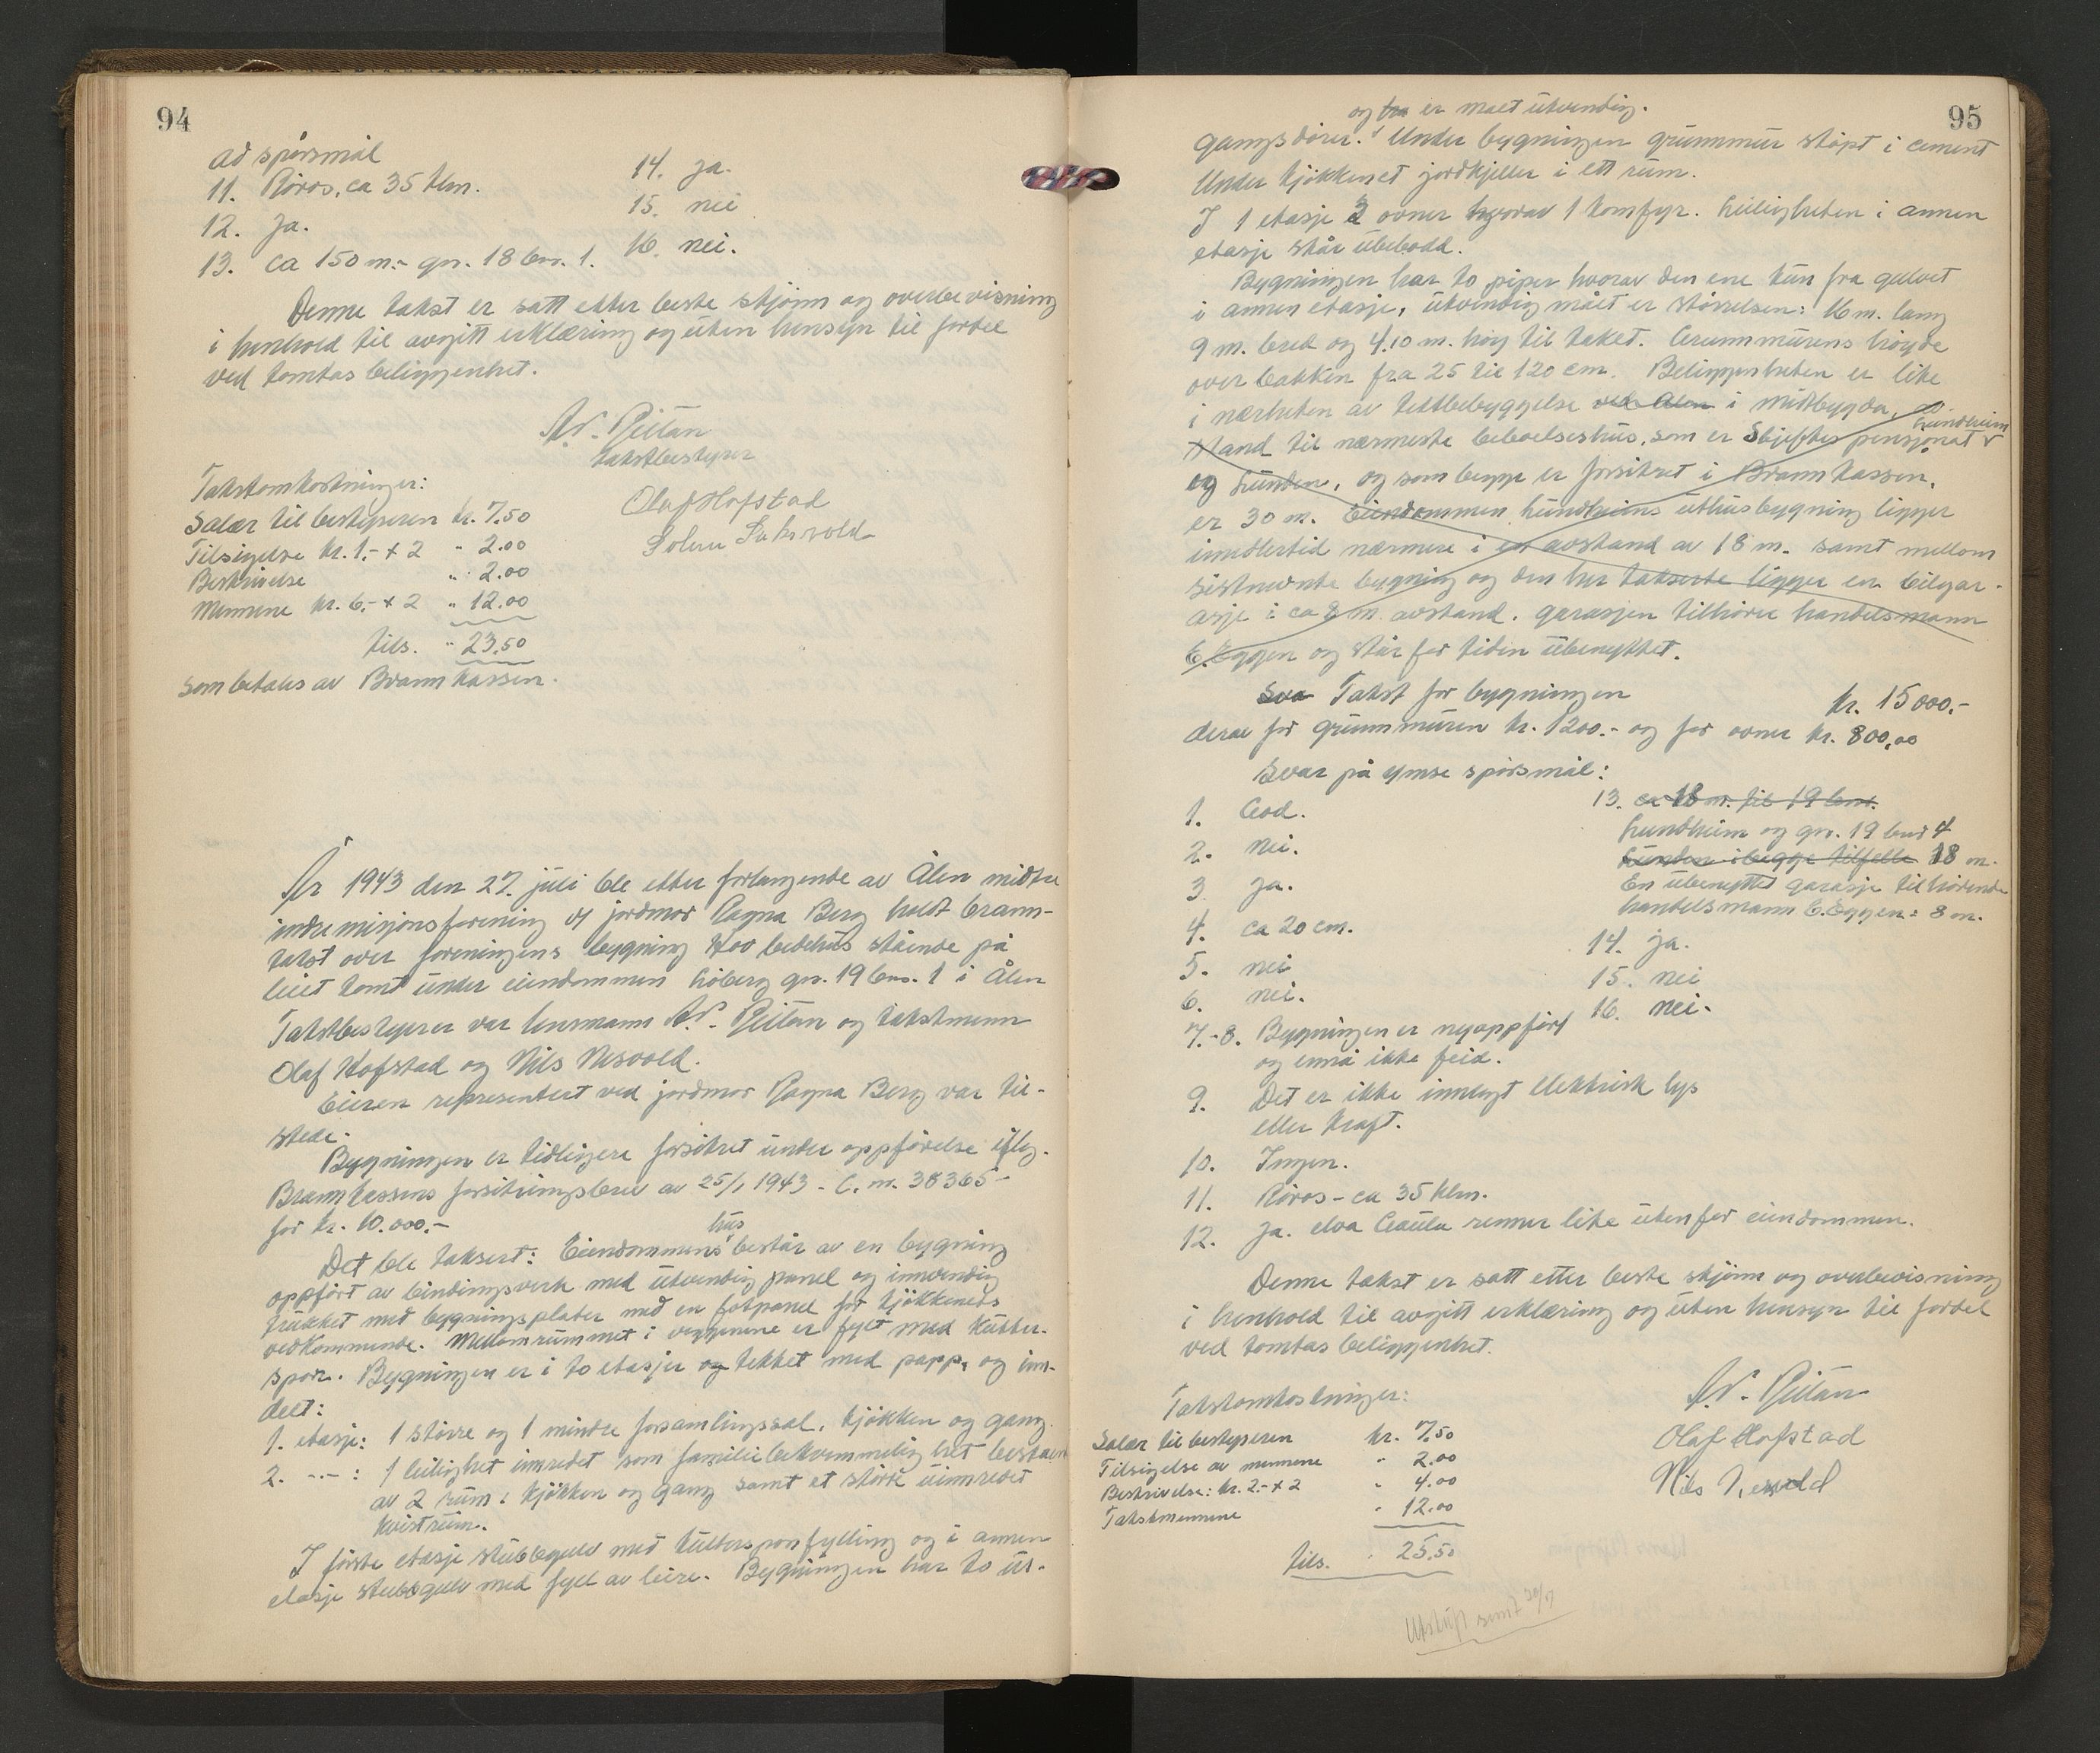 94
Ad spörsmål
11. Röros, ca 35 klm.
12. Ja.
13. ca 150 m.- gn. 18 bn. 1.
14. Ja.
15. nei
16. nei.
Denne takst er satt etter beste skjönn og overbevisning
i henhold til avgitt erklæring og uten hensyn til fordel
ved tomtas beliggenhet.
A.N. Reitan
takstbestyrer
Olaf Hofstad
Takstomkostninger:
Salær til bestyreren kr. 7,50
Tilsigelse kr. 1.- x 2 " 2.00
Beskrivelse " 2.00
Mennene kr. 6.- x 2 " 12.00
tils. " 23,50
som betales av Brannkassen.
År 1943 den 27. juli ble etter forlangende av Ålen midtre
indremisjonsforening v/ jordmor Ragna Berg holdt brann-
takst over foreningens bygning bedehus stående på
leiet tomt under eiendommen Loberg gn. 19 bn. 1 i Ålen
Takstbestyrer var lensmann A.N. Reitan og takstmenn
Olaf Hofstad og Nils Nesvold.
Eieren representert ved jordmor Ragna Berg var til-
stede.
Bygningen er tidligere forsikret under oppförelse iflg.
Brannkassens forsikringsbrev av 25/1 1943 - C. nr. 38365-
for kr. 10.000.-
hus
Det ble taksert: Eiendommens består av en bygning
oppfört av bindingsverk med utvendig panel og innvendig
trukket med bygningsplater med en fotpanel for kjökkenets
vedkommende. Mellomrummet i veggene er fylt med kutter-
spon. Bygningen er i to etasjer og tekket med papp, og inn-
delt:
1. etasje: 1 större og 1 mindre forsamlingssal, kjökken og gang.
2. -"- : 1 leilighet innredet som familiebekvemmelighet bestående
av 2 rum: kjökken og gang samt et större uinnredet
kvistrum.
I förste etasje stubbgulv med kuttersponfylling og i annen
etasje stubbgulv med fyll av leire. Bygningen har to ut-
95
og er malt utvendig.
gangsdörer. Under bygningen grunnmur stöpt i cement
Under kjökkenet jordkjeller i ett rum.
I 1 etasje 2 ovner hvorav 1 komfyr. Leiligheten i annen
etasje står ubebodd.
Bygningen har to piper hvorav den ene kun fra gulvet
i annen etasje, utvendig målt er störrelsen: 16 m. lang
9 m. bred og 4.10 m. höy til taket. Grunnmurens höyde
over bakken fra 25 til 120 cm. Beliggenheten er like
i nærheten av tettbebyggelse ved Ålen i midtbygda, av-
Lundheim
stand til nærmeste beboelseshus, som er pensjonat
og Lunden, og som begge er forsikret i Brannkassen,
er 30 m. Eiendommen Lundheims uthusbygning ligger
imidlertid nærmere i en avstand av 18 m. samt mellom
sistnevnte bygning og den her takserte ligger en bilgar-
asje i ca 8 m. avstand. Garasjen tilhörer handelsmann
E. Eggen og står for tiden ubenyttet.
Sva Takst for bygningen kr. 15000.-
derav for grunnmuren kr. 1200.- og for ovner kr. 800,00
Svar på ymse spörsmål:
1. God.
2. nei.
3. Ja.
4. ca 20 cm.
5. nei
6. nei.
7.-8. Bygningen er nyoppfört
og ennå ikke feid.
9. Det er ikke innlagt elektrisk lys
eller kraft.
10. Ingen.
11. Röros - ca 35 klm.
12. Ja. elva Gaula renner like utenfor eiendommen.
13. ca 18 m. til 19 bn.
Lundheim og gn. 19 bn. 4
Lunden i begge tilfelle 18 m.
En ubenyttet garasje tilhörende
handelsmann E. Eggen: 8 m.
14. ja.
15. nei
16. nei.
Denne takst er satt etter beste skjönn og overbevisning
i henhold til avgitt erklæring og uten hensyn til fordel
ved tomtas beliggenhet.
A.N. Reitan
Olaf Hofstad
Nils Nesvold
Takstomkostninger:
Salær til bestyreren kr. 7,50
Tilsigelse av mennene " 2.00
Beskrivelse: kr. 2.- x 2 " 4.00
Takstmennene " 12.00
tils. " 25,50
Utskrift sendt